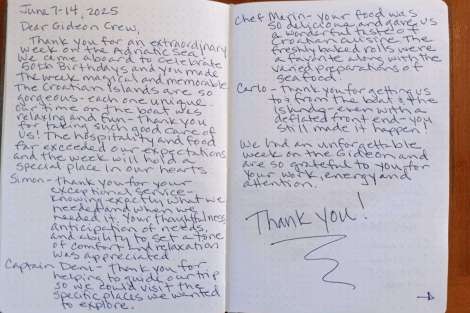 June 7-14, 2025
Dear Gideon Crew,
Thank you for an extraordinary
week on the Adriatic Sea!
We came aboard to celebrate
60th Birthdays and you made
the week magical and memorable.
The Croatian Islands are so
gorgeous - each one unique.
Our time on the boat was
relaxing and fun - Thank you
for taking such good care of
us! The hospitality and food
far exceeded our expectations
and the week will hold a
special place in our hearts
Simon - Thank you for your
exceptional service -
knowing exactly what we
needed and when we
needed it. Your thoughtfulness,
anticipation of needs,
and ability to set a tone
of comfort and relaxation
was appreciated
Captain Deni - Thank you for
helping to guide our trip
so we could visit the
specific places we wanted
to explore.
Chef Marin - your food was
so delicious and gave us
a wonderful taste of
Croatian cuisine. The
freshly baked rolls were
a favorite along with the
varied preparations of
seafood.
Carlo - Thank you for getting us
to & from the boat & the
islands - even with a
deflated front-end - you
still made it happen!
We had an unforgettable
week on the Gideon and
are so grateful to you for
your work, energy and
attention.
Thank you!